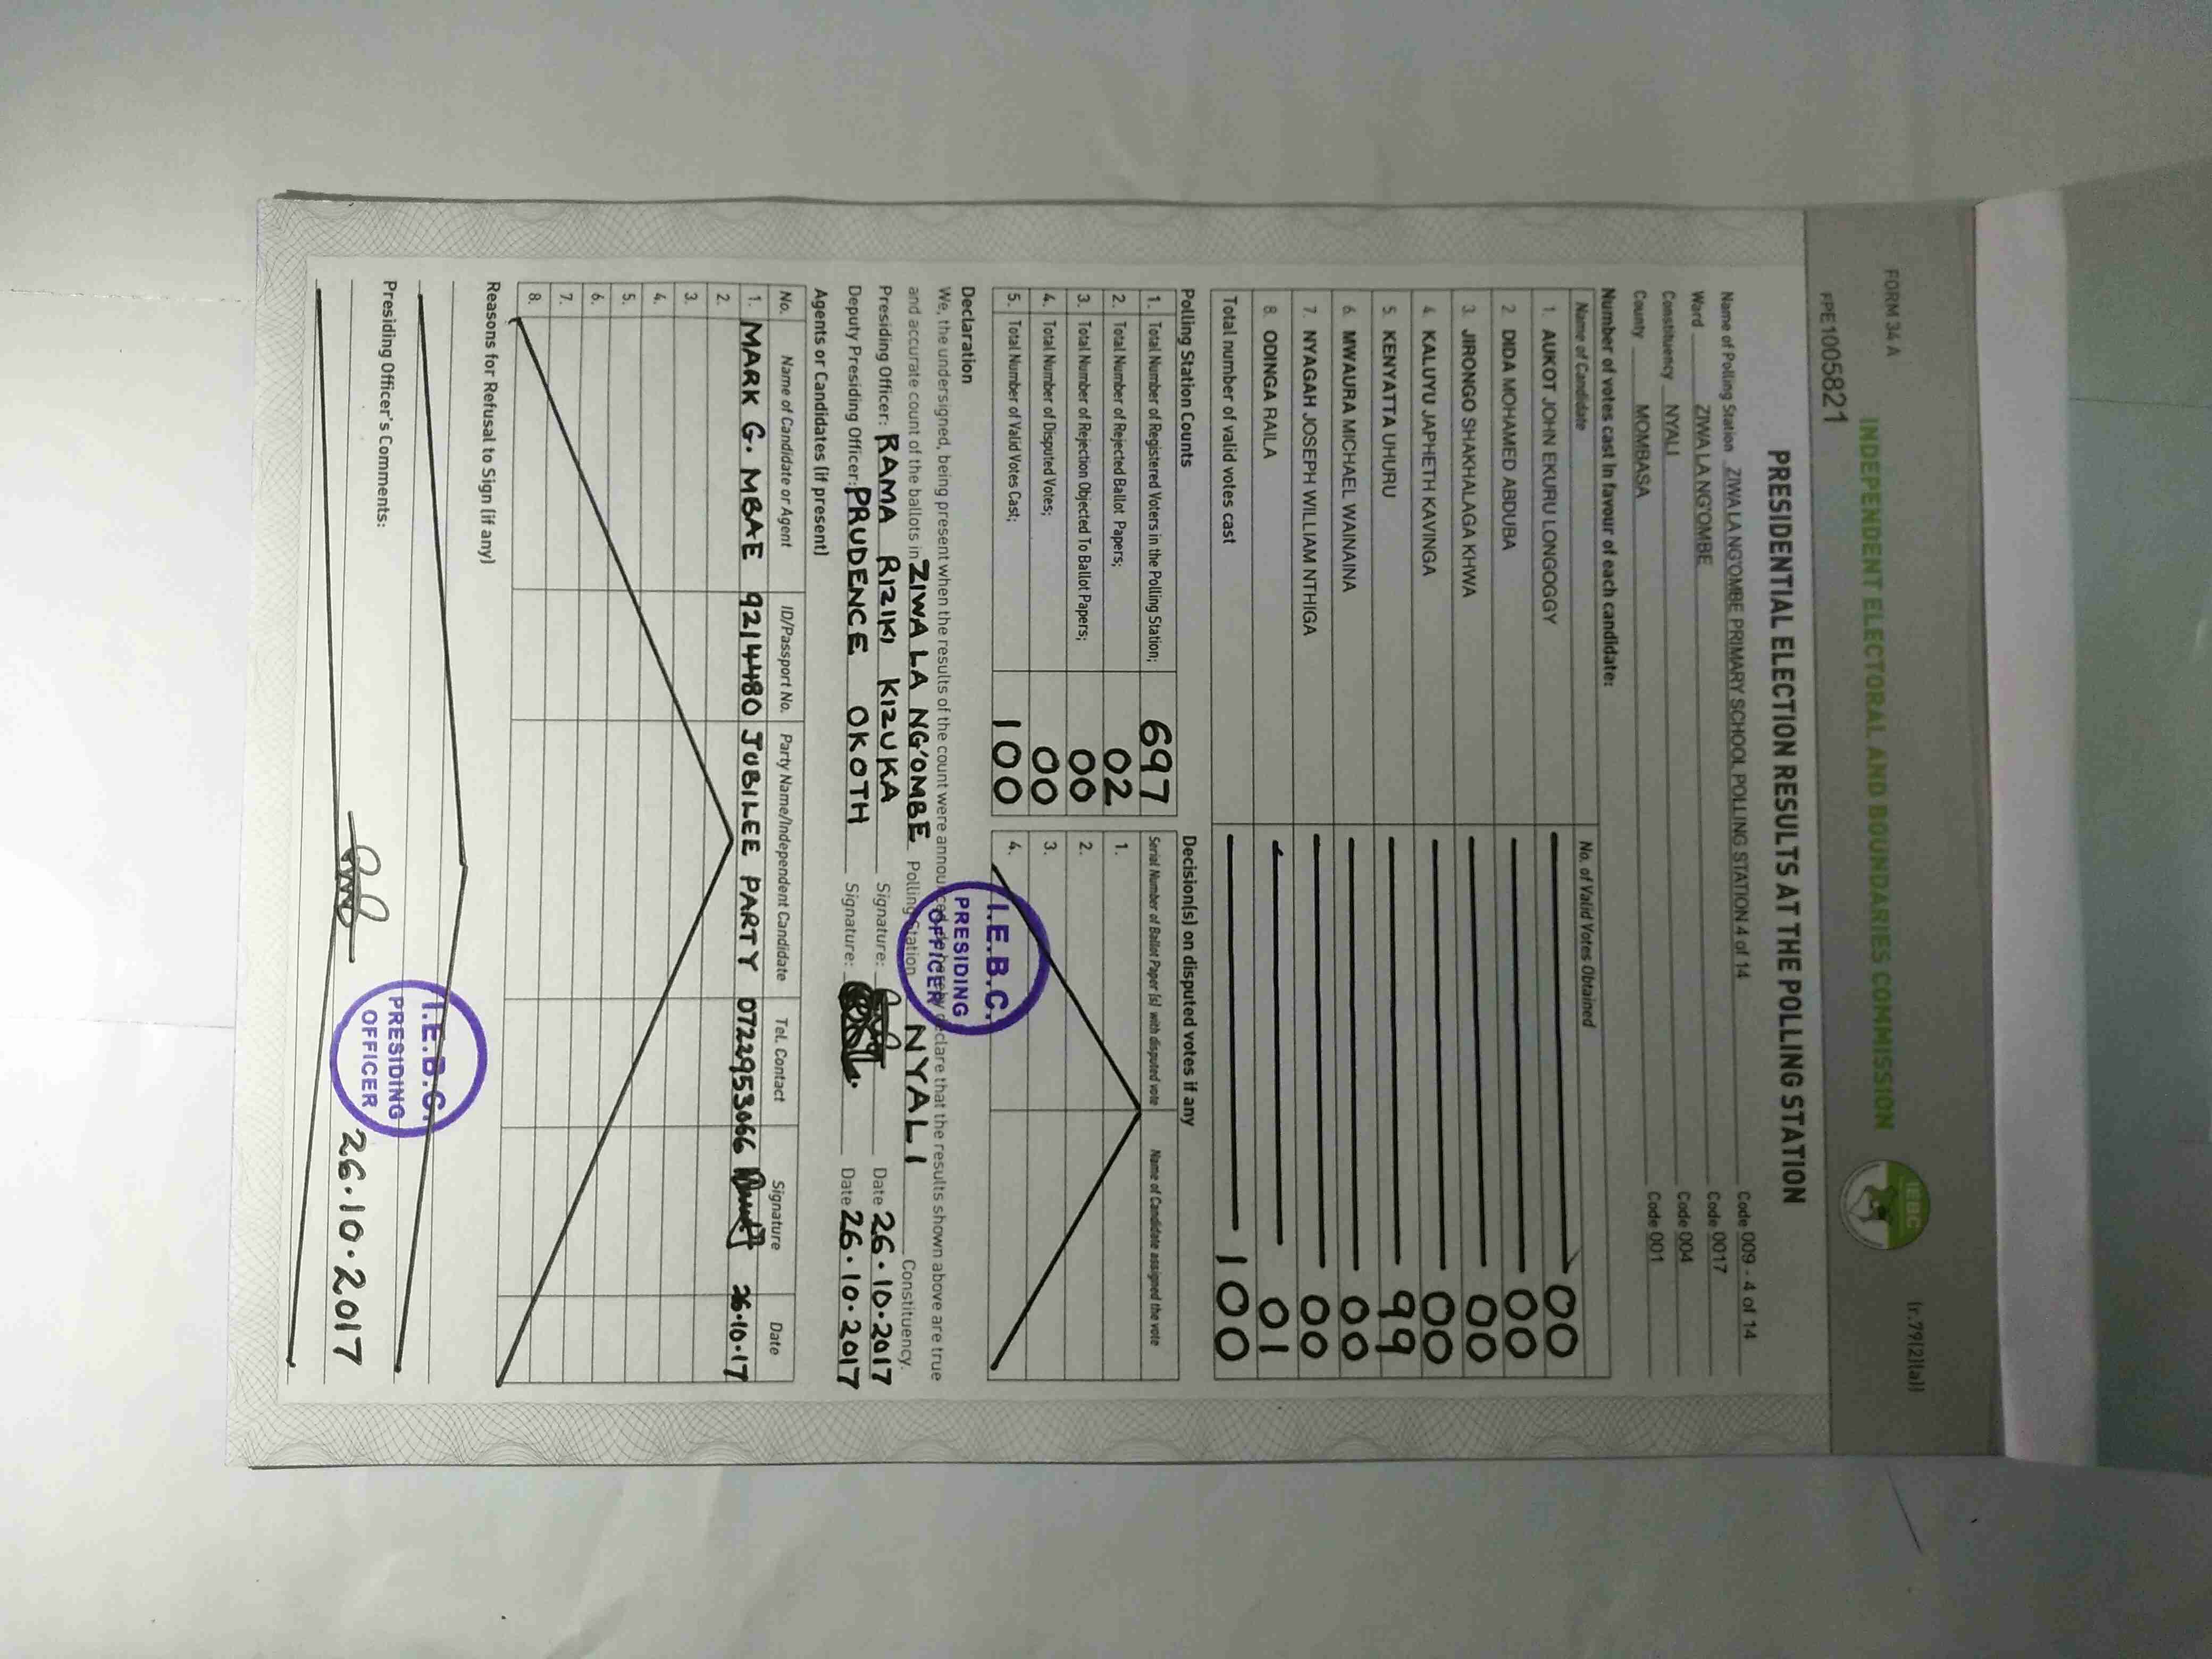 FORM 34 A
(r.79(2)(a))
INDEPENDENT ELECTORAL AND BOUNDARIES COMMISSION
IEBC
FPE1005821
PRESIDENTIAL ELECTION RESULTS AT THE POLLING STATION
Name of Polling Station ZIWA LA NG'OMBE PRIMARY SCHOOL POLLING STATION 4 of 14 Code 009 - 4 of 14
Ward ZIWA LA NG'OMBE Code 0017
Constituency NYALI Code 004
County MOMBASA Code 001
Number of votes cast in favour of each candidate:
Name of Candidate No. of Valid Votes Obtained
1. AUKOT JOHN EKURU LONGOGGY 00
2. DIDA MOHAMED ABDUBA 00
3. JIRONGO SHAKHALAGA KHWA 00
4. KALUYU JAPHETH KAVINGA 00
5. KENYATTA UHURU 99
6. MWAURA MICHAEL WAINAINA 00
7. NYAGAH JOSEPH WILLIAM NTHIGA 00
8. ODINGA RAILA 01
Total number of valid votes cast 100
Polling Station Counts
1. Total Number of Registered Voters in the Polling Station; 697
2. Total Number of Rejected Ballot Papers; 02
3. Total Number of Rejection Objected To Ballot Papers; 00
4. Total Number of Disputed Votes; 00
5. Total Number of Valid Votes Cast; 100
Decision(s) on disputed votes if any
Serial Number of Ballot Paper (s) with disputed vote Name of Candidate assigned the vote
1.
2.
3.
4.
I.E.B.C.
PRESIDING
OFFICER
Declaration
We, the undersigned, being present when the results of the count were announced, do hereby declare that the results shown above are true
and accurate count of the ballots in ZIWA LA NG'OMBE Polling Station NYALI Constituency.
Presiding Officer: RAMA RIZIKI KIZUKA Signature: Date 26.10.2017
Deputy Presiding Officer: PRUDENCE OKOTH Signature: Date 26.10.2017
Agents or Candidates (if present)
No. Name of Candidate or Agent ID/Passport No. Party Name/Independent Candidate Tel. Contact Signature Date
1. MARK G. MBAE 9214480 JUBILEE PARTY 0722953066 26.10.17
2.
3.
4.
5.
6.
7.
8.
Reasons for Refusal to Sign (if any)
Presiding Officer's Comments:
I.E.B.C.
PRESIDING
OFFICER
26.10.2017